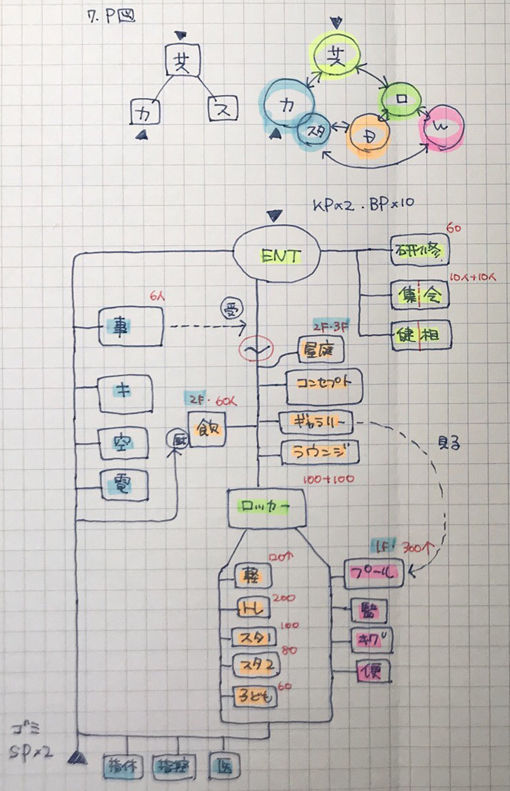 7. P図
共
カ
ス
共
カ
スタ
ロ
W
KPx2・BPx10
ENT
研修
60
集会
10人+10人
健相
6人
事
受
2F・3F
屋庭
キ
コンセプト
2F・60人
飲
厨
ギャラリー
空
ラウンジ
見る
電
100+100
ロッカー
1F・300↑
プール
120↑
軽
200
トレ
監
100
スタ1
キグ
80
スタ2
便
60
子ども
ゴミ
SPx2
指休
指控
医